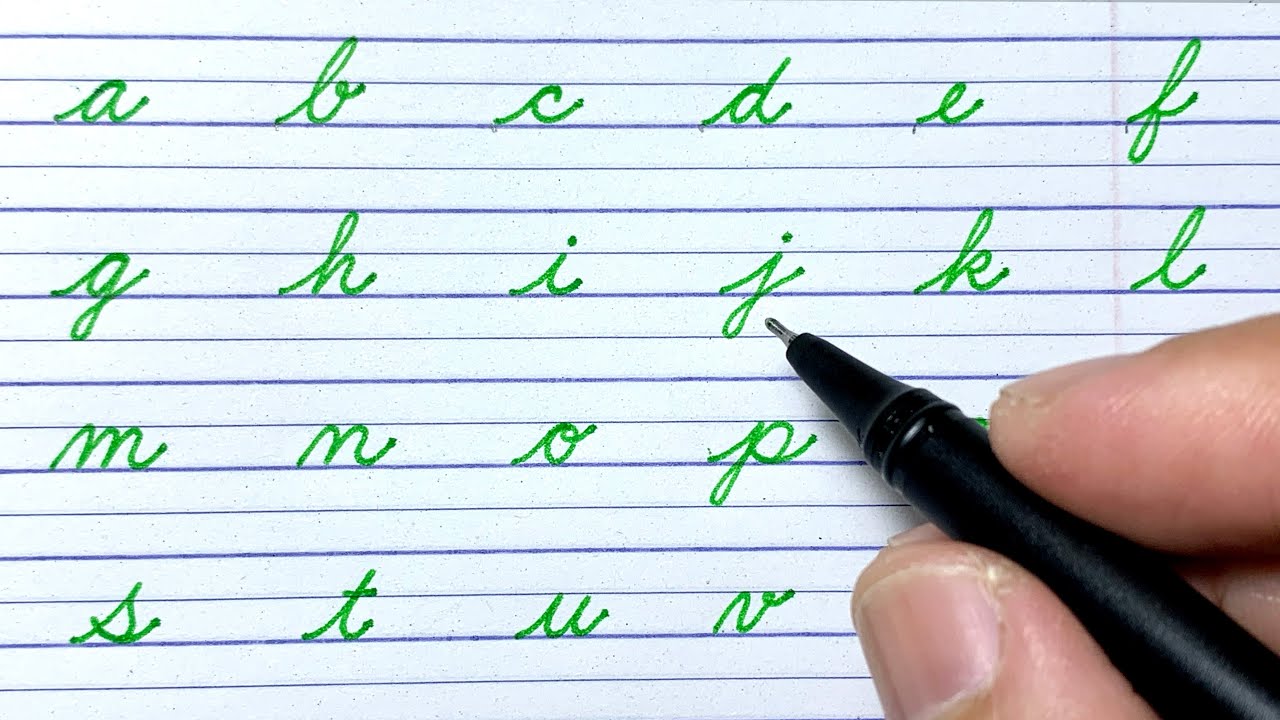 a b c d e f
g h i j k l
m n o p
s t u v